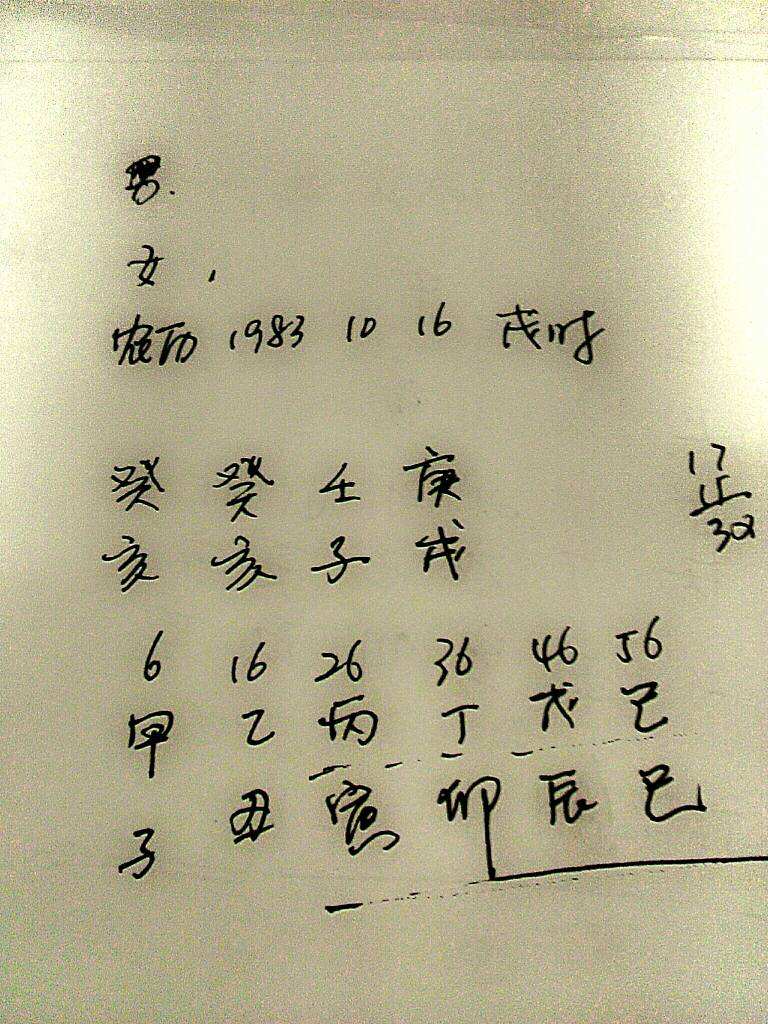 男.
女,
农历 1983 10 16 戌时
癸 癸 壬 庚
亥 亥 子 戌
17
6 16 26 36 46 56
甲 乙 丙 丁 戊 己
子 丑 寅 卯 辰 巳